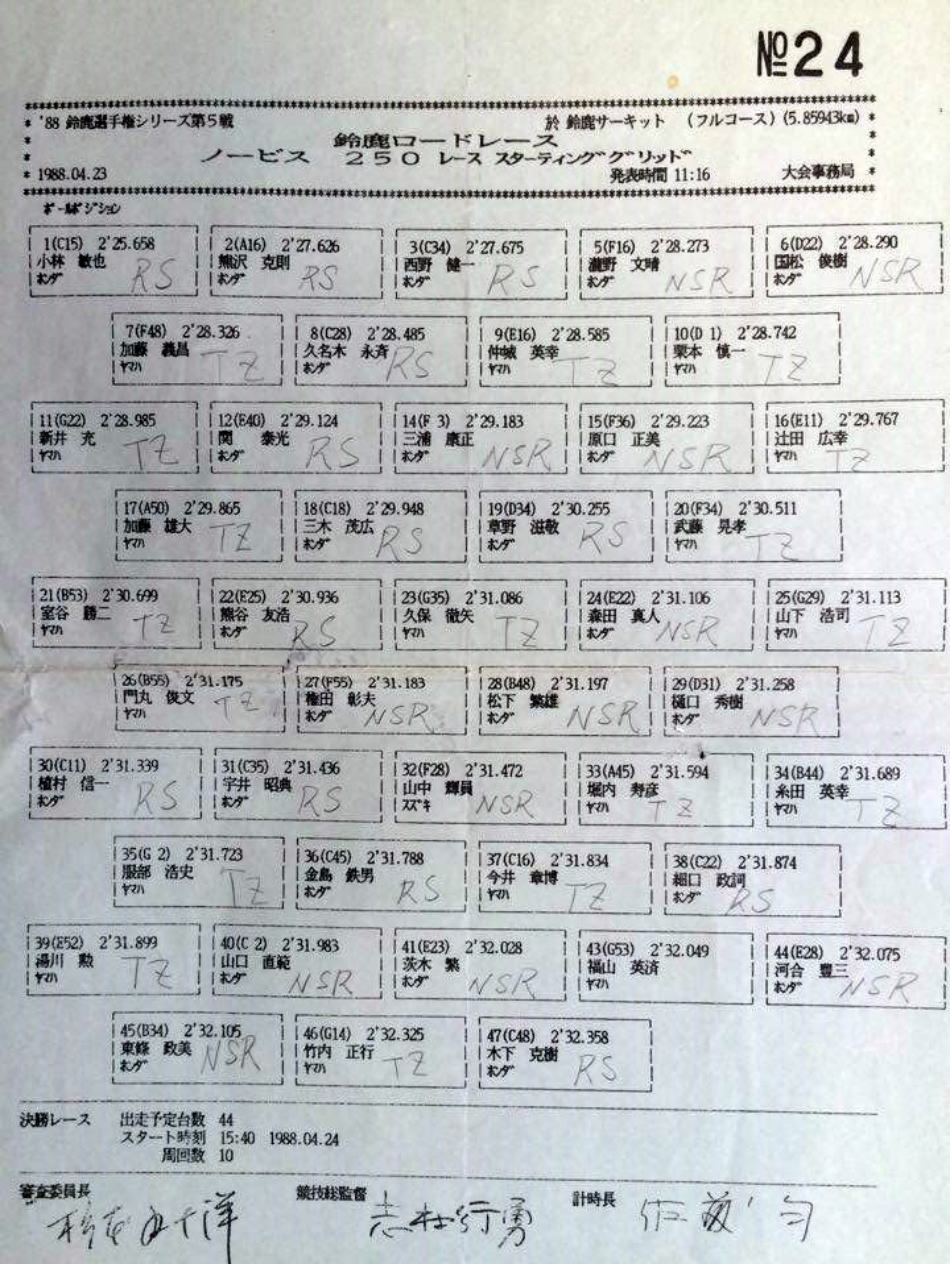 №24
'88 鈴鹿選手権シリーズ第5戦 於 鈴鹿サーキット (フルコース) (5.85943km)
鈴鹿ロードレース
ノービス 250 レース スターティンググリッド
1988.04.23 発表時間 11:16 大会事務局
ポールポジション
1(C15) 2'25.658 2(A16) 2'27.626 3(C34) 2'27.675 5(F16) 2'28.273 6(D22) 2'28.290
小林 敏也 熊沢 克則 西野 健一 瀧野 文晴 国松 俊樹
ホンダ RS ホンダ RS ホンダ RS ホンダ NSR ホンダ NSR
7(F48) 2'28.326 8(C28) 2'28.485 9(E16) 2'28.585 10(D 1) 2'28.742
加藤 義昌 久名木 永斉 仲城 英幸 栗本 慎一
ヤマハ TZ ホンダ RS ヤマハ TZ ヤマハ TZ
11(G22) 2'28.985 12(E40) 2'29.124 14(F 3) 2'29.183 15(F36) 2'29.223 16(E11) 2'29.767
新井 充 関 泰光 三浦 康正 原口 正美 辻田 広幸
ヤマハ TZ ホンダ RS ホンダ NSR ホンダ NSR ヤマハ TZ
17(A50) 2'29.865 18(C18) 2'29.948 19(D34) 2'30.255 20(F34) 2'30.511
加藤 雄大 三木 茂広 草野 滋敬 武藤 晃孝
ヤマハ TZ ホンダ RS ホンダ RS ヤマハ TZ
21(B53) 2'30.699 22(E25) 2'30.936 23(G35) 2'31.086 24(E22) 2'31.106 25(G29) 2'31.113
室谷 勝二 熊谷 友浩 久保 徹矢 森田 真人 山下 浩司
ヤマハ TZ ホンダ RS ヤマハ TZ ホンダ NSR ヤマハ TZ
26(B55) 2'31.175 27(F55) 2'31.183 28(B48) 2'31.197 29(D31) 2'31.258
門丸 俊文 権田 彰夫 松下 繁雄 樋口 秀樹
ヤマハ TZ ホンダ NSR ホンダ NSR ホンダ NSR
30(C11) 2'31.339 31(C35) 2'31.436 32(F28) 2'31.472 33(A45) 2'31.594 34(B44) 2'31.689
植村 信一 宇井 昭典 山中 輝員 堀内 寿彦 糸田 英幸
ホンダ RS ホンダ RS スズキ NSR ヤマハ TZ ヤマハ TZ
35(G 2) 2'31.723 36(C45) 2'31.788 37(C16) 2'31.834 38(C22) 2'31.874
服部 浩史 金島 鉄男 今井 章博 細口 政詞
ヤマハ TZ ホンダ RS ヤマハ TZ ホンダ RS
39(E52) 2'31.899 40(C 2) 2'31.983 41(E23) 2'32.028 43(G53) 2'32.049 44(E28) 2'32.075
湯川 勲 山口 直範 茨木 繁 福山 英済 河合 豊三
ヤマハ TZ ホンダ NSR ホンダ NSR ヤマハ ホンダ NSR
45(B34) 2'32.105 46(G14) 2'32.325 47(C48) 2'32.358
東條 政美 竹内 正行 木下 克樹
ホンダ NSR ヤマハ TZ ホンダ RS
決勝レース 出走予定台数 44
スタート時刻 15:40 1988.04.24
周回数 10
審査委員長 競技総監督 計時長
志村行勇